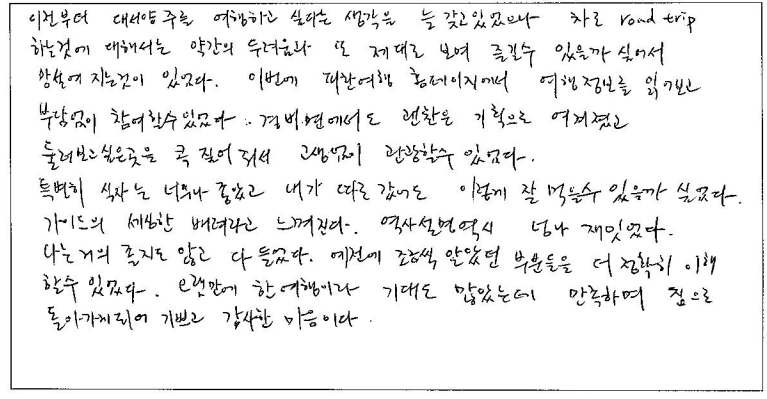 이전부터 대서양 주를 여행하고 싶다는 생각은 늘 갖고있었으나 차로 road trip
하는것에 대해서는 약간의 두려움과 또 제대로 보며 즐길수 있을까 싶어서
망설여 지는것이 있었다. 이번에 파란여행 홈페이지에서 여행정보를 읽어보고
부담없이 참여할수있었다. 경비면에서도 괜찮은 기획으로 여겨졌고
둘러보고싶은곳을 콕 짚어 줘서 고생없이 관광할수 있었다.
특별히 식사는 너무나 좋았고 내가 따로 갔어도 이렇게 잘 먹을수 있을까 싶었다.
가이드의 세심한 배려라고 느껴진다. 역사설명역시 넘나 재밌었다.
나는 거의 졸지도 않고 다 들었다. 예전에 조금씩 알았던 부분들을 더 정확히 이해
할수 있었다. 오랜만에 한여행이라 기대도 많았는데 만족하며 집으로
돌아가게되어 기쁘고 감사한 마음이다.